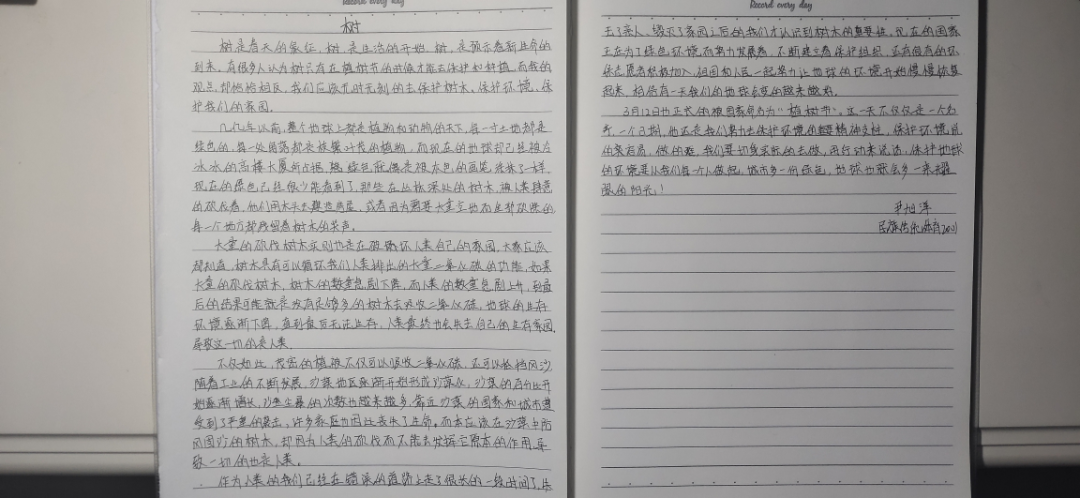 Record every day
树
树是春天的象征，树，是生活的开始，树，是预示着新生命的
到来，有很多人认为树只有在植树节的时候才能去保护和种植，而我的
观点却恰恰相反，我们应该无时无刻的去保护树木，保护环境，保
护我们的家园。
几亿年以前，整个地球上都是植物和动物的天下，每一寸土地都是
绿色的，每一处角落都是枝繁叶茂的植物，而现在的地球却已经被冷
冰冰的高楼大厦所占据，绿色就像是被水色的画笔涂抹了一样，
现在的原色已经很少能看到了，那些在丛林深处的树木，被人类肆意
的砍伐着，他们用木头去，或者因为需要大量空地而去
每一个地方都残留着树木的哭声。
大量的砍伐树木实则也是在破坏人类自己的家园，大家应该
都知道，树木具有可以循环我们人类排出的大量二氧化碳的功能，如果
大量的砍伐树木，树木的数量急剧下降，而人类的数量急剧上升，到最
后的结果可能就是没有足够多的树木去吸收二氧化碳，地球的生存
环境逐渐下降，直到最后无法生存，人类最终也会失去自己的生存家园，
导致这一切的是人类。
不仅如此，茂密的植被不仅可以吸收二氧化碳，还可以抵挡风沙，
随着工业的不断发展，沙漠地区逐渐开始形成沙漠化，沙漠的百分比开
始逐渐增长，沙尘暴的次数也越来越多，靠近沙漠的国家和城市遭
受到了严重的袭击，许多家庭也因此丧失了生命。而本应该在沙漠中防
风固沙的树木，却因为人类的砍伐而不能去发挥它原本的作用，导
致一切的也是人类。
作为人类的我们已经在错误的道路上走了很长的一段时间了，失
Record every day
去了亲人，毁灭了家园之后的我们才认识到树木的重要性，现在的国家
正在为了绿色环境而努力发展着，不断建立着保护组织，还有很多的环
保志愿者积极加入，祖国和人民一起努力让地球的环境开始慢慢恢复
起来，相信有一天我们的地球会变的越来越好。
3月12日也正式的被国家命名为“植树节”，这一天不仅仅是一个名
字，一个日期，他还是我们努力去保护环境的精神支柱，保护环境说
的容易，做的难，我们要切身实际的去做，用行动来说话，保护地球
的环境是从我们每一个人做起，城市多一份绿色，地球也就会多一束耀
眼的阳光！
尹旭洋
民族传统体育2001